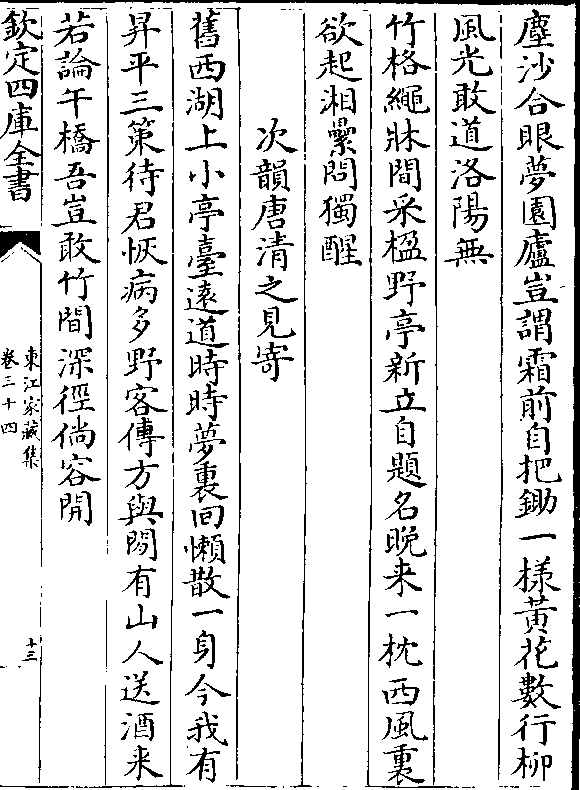 塵沙合眼夢園廬豈謂霜前自把鋤一様黄花數行栁
風光敢道洛陽無
竹格繩牀間采楹野亭新立自題名晚来一枕西風裏
欲起湘纍問獨醒
次韻唐清之見寄
舊西湖上小亭臺遠道時時夢裏回懶散一身今我有
昇平三策待君恢病多野客傳方與閒有山人送酒来
若論午橋吾豈敢竹間深徑倘容開
欽定四庫全書
東江家藏集
卷三十四
十三